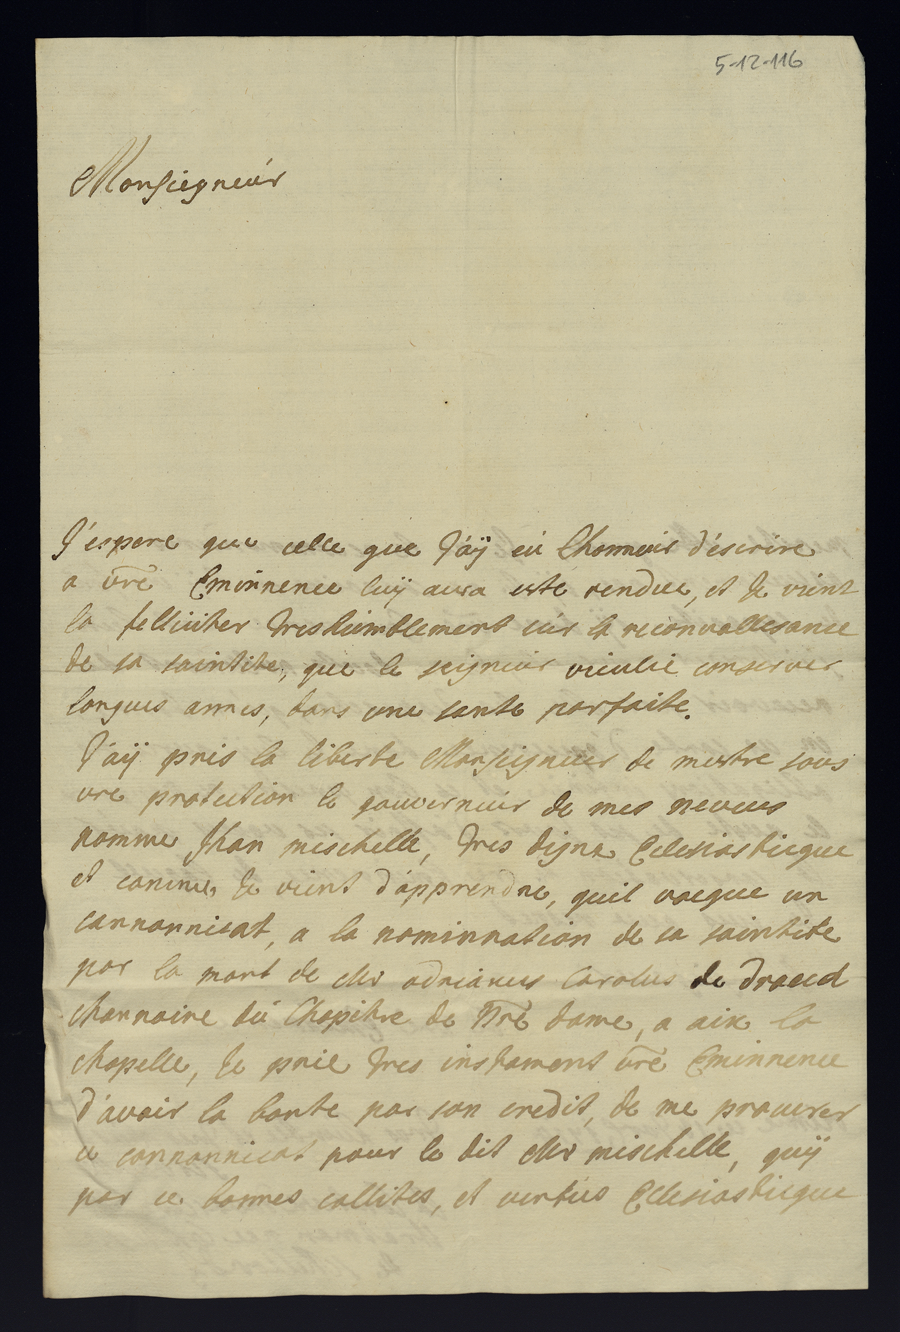 5-12-116
Monsiegneúr
J'espere que celle que J'aÿ eú Lhonneúr d'escrire
a vre Eminnence luÿ aura este rendue, et Je vient
la felliciter treshúmblement súr la reconvallesance
de sa saintite, que le seigneúr vieulie conserver
longues annes, dans une sante parfaite.
J'aÿ pris la liberte Monseigneúr de mestre sous
vre protection le gouverneúr de mes neveus
nomme Jhan mischelle, tres digne Eclesiasticque
et comme Je vient d'apprendre, quil vacque un
cannonnicat, a la nominnation de sa saintite
par la mort de Mr adrianus Carolus de draeck
channoine dú Chapitre de Nre dame, a aix la
chapelle, Je prie tres instament vre Eminnence
d'avoir la bonte par son credit, de me procurer
ce cannonnicat pour le dit Mr mischelle, quÿ
par ce bonnes callites, et vertús Eclesiasticque